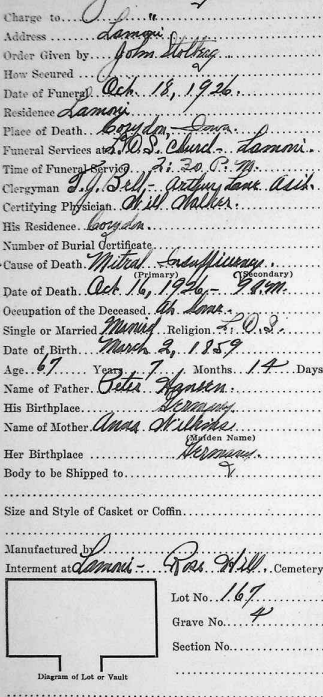 Charge to " "
Address Lamoni
Order Given by John Stolberg
How Secured
Date of Funeral Oct. 18, 1926.
Residence Lamoni
Place of Death Corydon - Iowa
Funeral Services at L.D.S. Church - Lamoni.
Time of Funeral Service 2:30 P.M.
Clergyman T.J. Bell, - Arthur Lane Asst.
Certifying Physician Will Walker.
His Residence Corydon
Number of Burial Certificate
Cause of Death Mitral Insufficiency
(Primary) (Secondary)
Date of Death Oct 16, 1926, - 9 a.m.
Occupation of the Deceased At home
Single or Married Married Religion L.D.S.
Date of Birth March 2, 1859
Age 67 Years 7 Months 14 Days
Name of Father Peter Hansen.
His Birthplace Germany
Name of Mother Anna Wilkins
(Maiden Name)
Her Birthplace Germany.
Body to be Shipped to
Size and Style of Casket or Coffin
Manufactured by
Interment at Lamoni - Rose Hill Cemetery
Lot No. 167
Grave No. 4
Section No.
Diagram of Lot or Vault